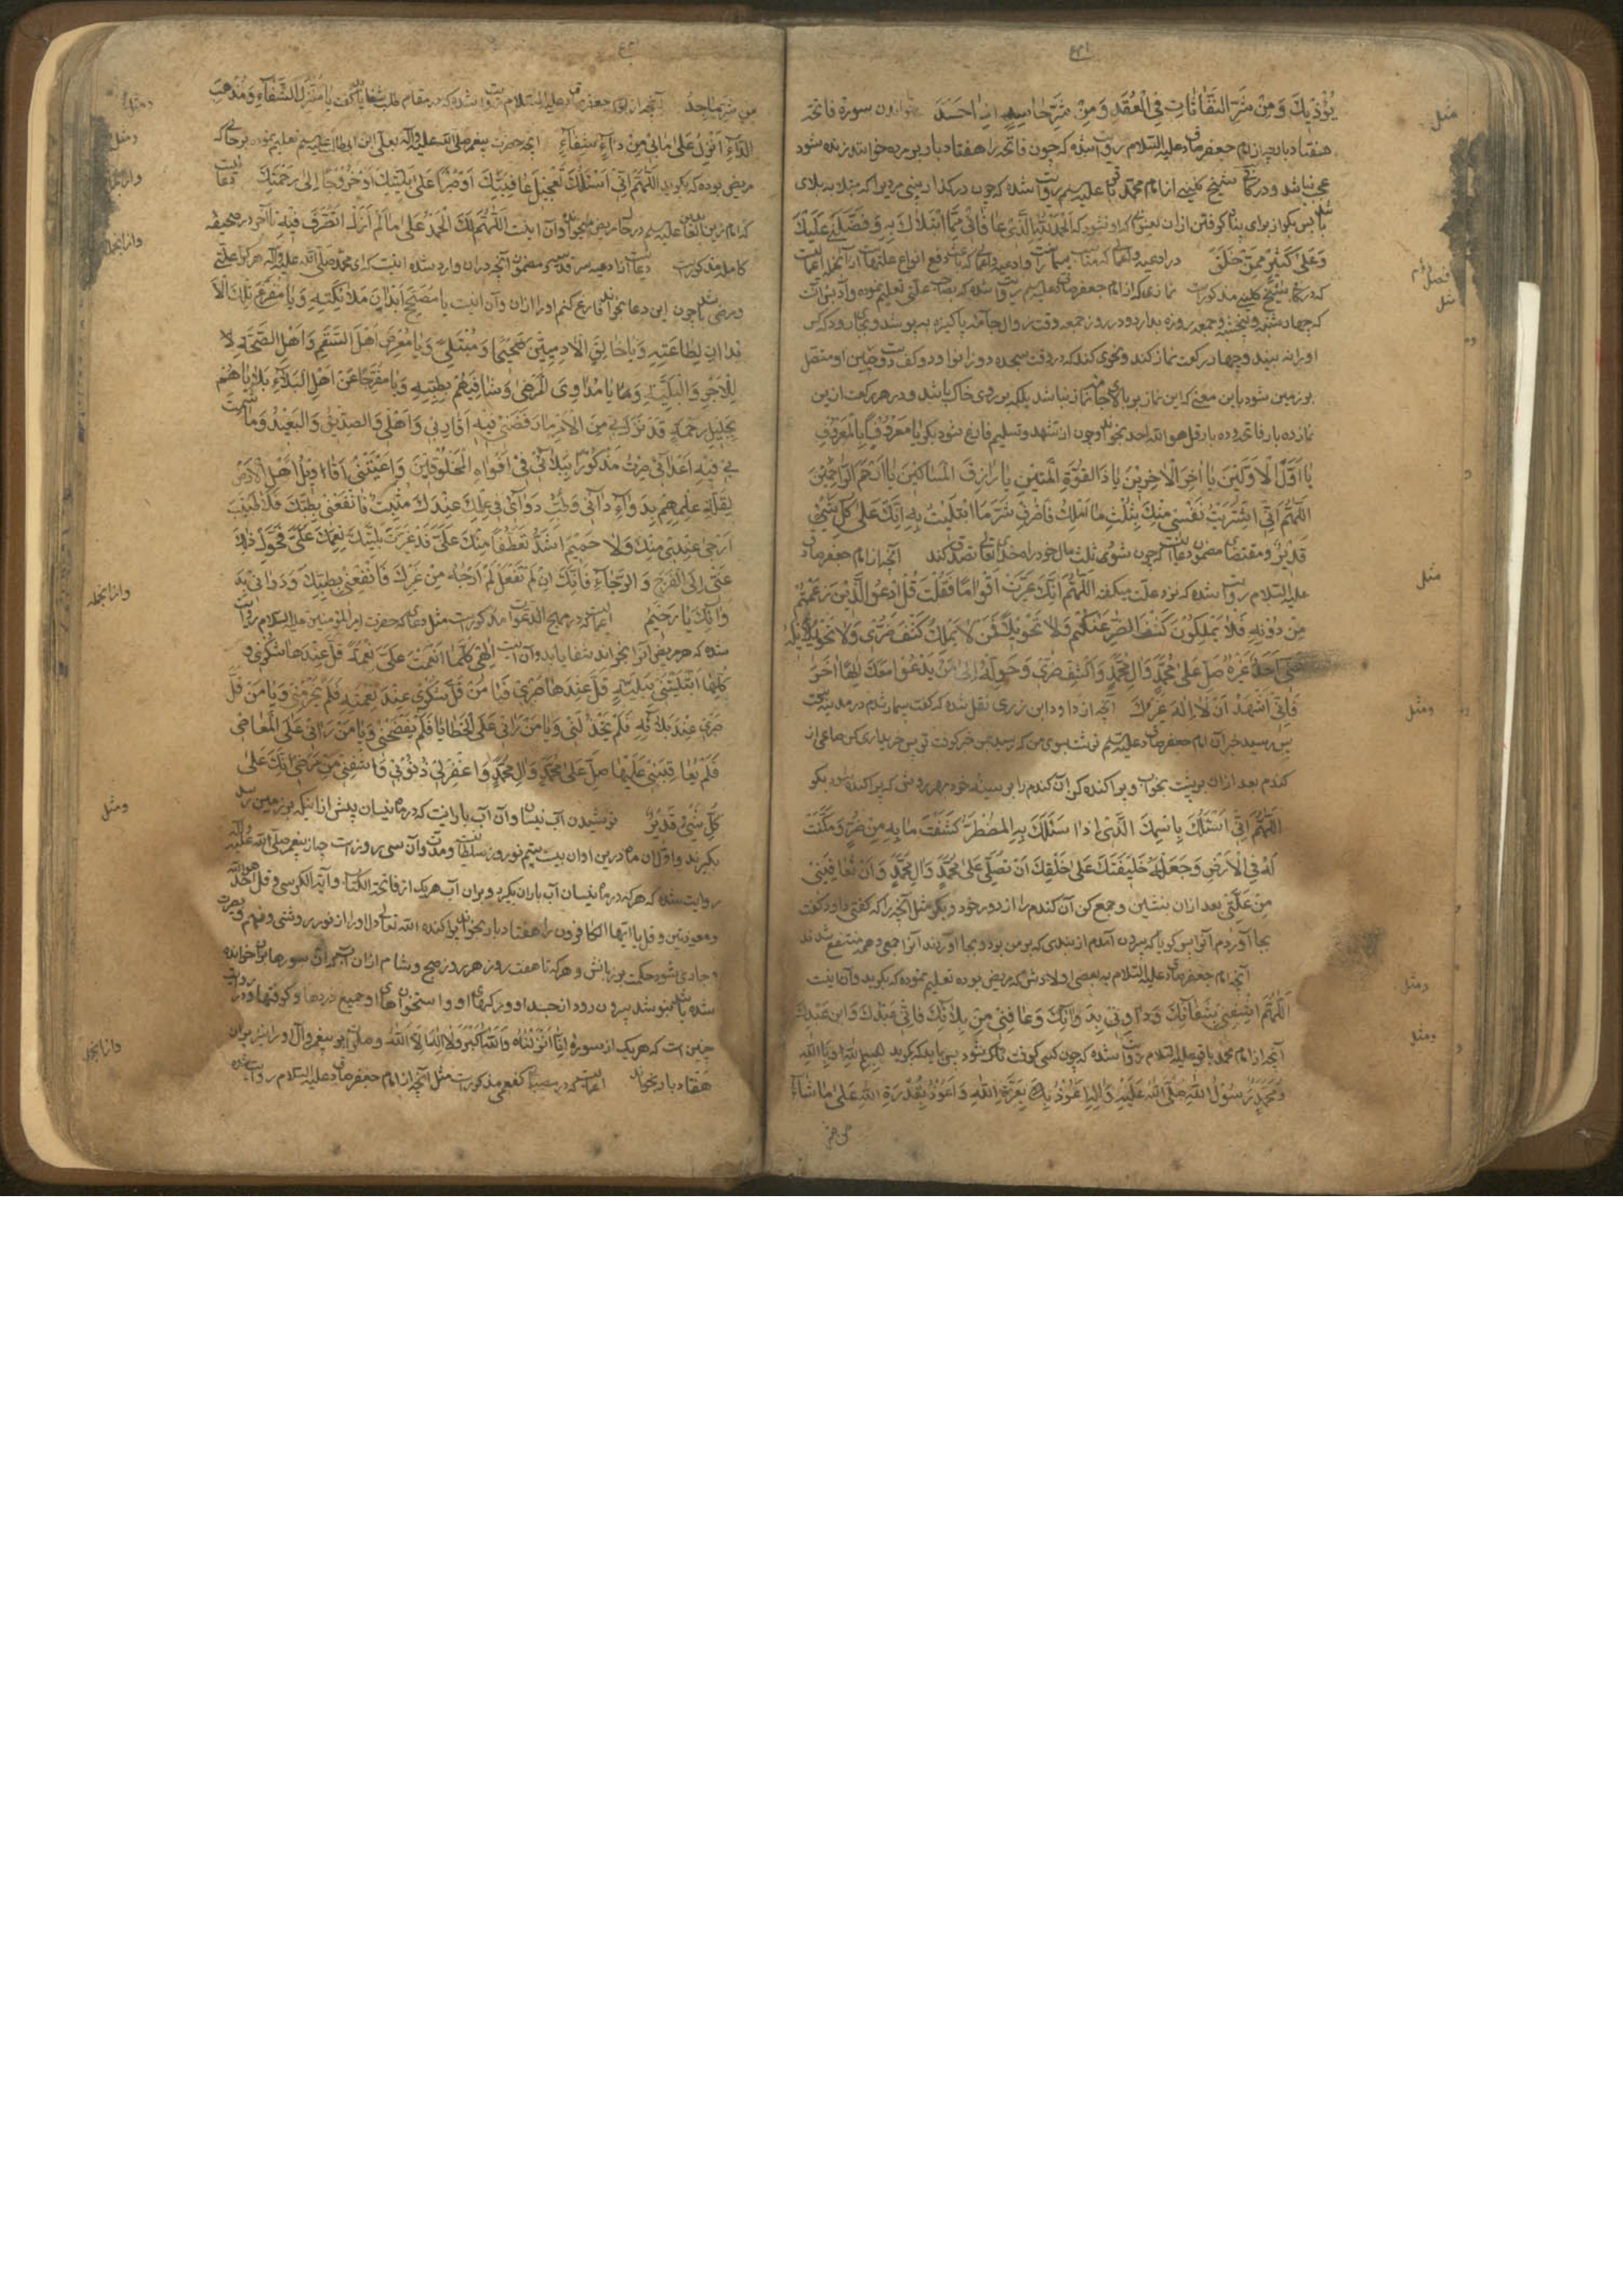 یُؤْذیكَ وَمِنْ شَرِّ النَفّاثاتِ فِی الْعُقَدِ وَمِنْ شَرِّ حاسِدٍ اِذا حَسَدَ خواندن سورهٔ فاتحه
هفتاد بار چه از امام جعفر صادق علیه السّلام روایت شده که چون فاتحه را هفتاد بار بر مرده خوانند زنده شود
عجب نباشد و در کتاب شیخ کلینی از امام محمّد باقر علیه السلم روایت شده که چون در کنار بینی مردی را که مبتلا به بلای
باشد پس بکو از برای پناه کرفتن ازان بعنوانی که او نشنود که اَلْحَمْدُ لِلّهِ الَّذی عافانی مِمَّا ابْتَلاكَ بِهِ وَفَضَّلَنی عَلَیْكَ
وَعَلی كَثیرٍ مِمَّنْ خَلَقَ در ادعیه و اعمالی که مناسب بیمار است و ادعیه و اعمالی که باعث دفع انواع علتهاست از آنجمله اعمالیست
که در کتاب شیخ کلینی مذکورست نمازی که از امام جعفر صادق علیه السلم روایت شده که بصاحب علتی تعلیم نموده و آدابش آنست
که چهارشنبه و پنجشنبه و جمعه روزه بدارد و در روز جمعه وقت زوال جامهٔ پاکیزه بپوشد و بجائی رود که کس
او را نه بیند و چهار رکعت نماز کند و نحوی کند که در وقت سجده دو زانو و دو کف دست و جبین او متصل
بزمین شود باین معنی که این نماز بر بالای جا نماز نباشد بلکه بر روی خاک باشد و در هر رکعت ازین
نماز ده بار فاتحه و ده بار قل هو اللّه احد بخواند و چون از تشهد و تسلیم فارغ شود بکوید یا مَعْرُوفاً بِالْمَعْرُوفِ
یا اَوَّلَ الْاَوَّلینَ یا اخِرَ الْاخِرینَ یا ذَا القُوَّةِ الْمَتینِ یا رازِقَ الْمَساكینَ یا اَرْحَمَ الرّاحِمینَ
اَللّهُمَّ اِنّی اشْتَرَیْتُ نَفْسی مِنْكَ بِثُلْثِ ما اَمْلِكُ فَاصْرِفْ شَرَّ مَا ابْتُلیتُ بِهِ اِنَّكَ عَلی كُلِّ شَیْءٍ
قَدیرٌ و مقتضای مضمون دعا آنست که چون شوی ثلث مال خود را در راه خدای تعالی تصدق کند آنچه از امام جعفر صادق
علیه السّلام روایت شده که نزد علّت میکفته اَللّهُمَّ اِنَّكَ عَیَّرْتَ اَقْواماً فَقُلْتَ قُلِ ادْعُوا الَّذینَ زَعَمْتُمْ
مِنْ دُونِهِ فَلا یَمْلِكُونَ كَشْفَ الضُّرِّ عَنْكُمْ وَلا تَحْویلاً فَمَنْ لا یَمْلِكُ كَشْفَ ضُرّی وَلا تَحْویلَهُ
عَنّی اَحَدٌ غَیْرُهُ صَلِّ عَلی مُحَمَّدٍ وَالِ مُحَمَّدٍ وَاكْشِفْ ضُرّی وَحَوِّلْهُ اِلی مَنْ یَدْعُوا مَعَكَ اِلهاً اخَرَ
فَاِنّی اَشْهَدُ اَنْ لا اِلهَ غَیْرُكَ آنچه از داود ابن زربی نقل شده که کفت بیمار شدم در مدینه سخت
پس رسید خبر آن امام جعفر صادق علیه السلم نوشت بسوی من که رسید بمن خبر کوفت تو پس خریداری کن صاعی از
کندم بعد ازان بر پشت بخواب و پراکنده کن آن کندم را بر سینهٔ خود بهر روش که پراکنده شود بکو
اَللّهُمَّ اِنّی اَسْئَلُكَ بِاسْمِكَ الَّذی اِذا سَئَلَكَ بِهِ الْمُضْطَرُّ كَشَفْتَ ما بِهِ مِنْ ضُرٍّ وَمَكَّنْتَ
لَهُ فِی الْاَرْضِ وَجَعَلْتَهُ خَلیفَتَكَ عَلی خَلْقِكَ اَنْ تُصَلِّیَ عَلی مُحَمَّدٍ وَالِ مُحَمَّدٍ وَاَنْ تُعافِیَنی
مِنْ عِلَّتی بعد ازان بنشین و جمع کن آن کندم را از دور خود و بکو مثل آنچه را که کفتی داود کفت
بجا آوردم آنرا پس کویا که بیرون آمدم از بندی که بر من بود و بجا آوردند آنرا جمعی و همه منتفع شدند
آنچه امام جعفر صادق علیه السّلام به بعضی اولادش که مریض بوده تعلیم نموده که بکوید و آن اینست
اَللّهُمَّ اشْفِنی بِشَفائِكَ وَداوِنی بِدَوائِكَ وَعافِنی مِنْ بَلائِكَ فَاِنّی عَبْدُكَ وَابْنُ عَبْدِكَ
آنچه از امام محمد باقر علیه السّلام روایت شده که چون کسی کوفتناک شود پس باید که بکوید بِسْمِ اللّهِ وَبِاللّهِ
وَمُحَمَّدٌ رَسُولُ اللّهِ صَلَّی اللّهُ عَلَیْهِ وَالِهِ اَعُوذُ بِعِزَّةِ اللّهِ وَاَعُوذُ بِقُدْرَةِ اللّهِ عَلی ما شاءَ
من شر
مثل
فصل دوم
مثل
مثل
ومثل
ومثل
ومثل
مِنْ شَرِّ ما اَجِدُ آنچه از امام جعفر صادق علیه السّلام روایت شده که در مقام طلب شفا باید کفت یا مُنْزِلَ الشِّفاءِ وَمُذْهِبَ
الدّاءِ اَنْزِلْ عَلی ما بی مِنْ داءٍ شِفاءً آنچه حضرت پیغمبر صلی اللّه علیه واله بعلی ابن ابی طالب علیه السلم تعلیم نموده در حالی که
مریض بوده که بکوید اَللّهُمَّ اِنّی اَسْئَلُكَ تَعْجیلَ عافِیَتِكَ اَوْ صَبْراً عَلی بَلِیَّتِكَ اَوْ خُرُوجاً اِلی رَحْمَتِكَ دعائیست
که امام زین العابدین علیه السلم در حالت مریضی میخوانده و آن اینست اَللّهُمَّ لَكَ الْحَمْدُ عَلی ما لَمْ اَزَلْ اَتَصَرَّفُ فیهِ تا آخر در صحیفه
کامله مذکورست دعائیست از ادعیه سر قدسی مضمون آنچه دران وارد شده اینست که ای محمّد صلّی اللّه علیه واله هر کرا علتی
و مرضی باشد چون این دعا بخواند فارغ کنم او را ازان و آن اینست یا مُصَحِّحَ اَبْدانِ مَلائِكَتِهِ وَیا مُفَرِّغَ تِلْكَ الْاَ
بْدانِ لِطاعَتِهِ وَیا خالِقَ الْادَمِیّینَ صَحیحاً وَمُبْتَلیً وَیا مُعَرِّضَ اَهْلِ السَّقَمِ وَاَهْلِ الصِّحَّةِ
لِلْاَجْرِ وَالْبَلِیَّةِ وَیا مُداوِیَ الْمَرْضی وَشافِیَهُمْ بِطِبِّهِ وَیا مُفَرِّجاً عَنْ اَهْلِ الْبَلاءِ بَلایاهُمْ
بِجَلیلِ رَحْمَتِهِ قَدْ نَزَلَ بی مِنَ الْاَمْرِ ما رَفَضَنی فیهِ اَقارِبی وَاَهْلی وَالصَّدیقُ وَالْبَعیدُ وَما شَمِتَ
بی فیهِ اَعْدائی حَتّی صِرْتُ مَذْكُوراً بِبَلائی فی اَفْواهِ الْمَخْلُوقینَ وَاَعْیَتْنی اَقاویلُ اَهْلِ الْاَرْضِ
لِقِلَّةِ عِلْمِهِمْ بِدَواءِ دائی وَطِبُّ دَوائی فی عِلْمِكَ عِنْدَكَ مُثْبَتٌ فَانْفَعْنی بِطِبِّكَ فَلا طَبیبَ
اَرْجی عِنْدی مِنْكَ وَلا حَمیمَ اَشَدُّ تَعَطُّفاً مِنْكَ عَلَیَّ قَدْ غَیَّرَتْ بَلِیَّتُكَ نِعَمَكَ عَلَیَّ فَحَوِّلْ ذلِكَ
عَنّی اِلَی الْفَرَجِ وَالرَّخاءِ فَاِنَّكَ اِنْ لَمْ تَفْعَلْ لَمْ اَرْجُهُ مِنْ غَیْرِكَ فَانْفَعْنی بِطِبِّكَ وَداوِنی بِدَ
وائِكَ یا رَحیمُ اعمالیست که در مهج الدّعوات مذکورست مثل دعائی که حضرت امیر المؤمنین علیه السلام روایت
شده که هر مریض آنرا بخواند شفا یابد و آن اینست اِلهی كُلَّما اَنْعَمْتَ عَلَیَّ نِعْمَةً قَلَّ عِنْدَها شُكْری وَ
كُلَّمَا ابْتَلَیْتَنی بِبَلِیَّةٍ قَلَّ عِنْدَها صَبْری فَیا مَنْ قَلَّ شُكْری عِنْدَ نِعْمَتِهِ فَلَمْ یَحْرِمْنی وَیا مَنْ قَلَّ
صَبْری عِنْدَ بَلائِهِ فَلَمْ یَخْذُلْنی وَیا مَنْ رَانی عَلَی الْخَطایا فَلَمْ یَفْضَحْنی وَیا مَنْ رَانی عَلَی الْمَعاصی
فَلَمْ یُعاقِبْنی عَلَیْها صَلِّ عَلی مُحَمَّدٍ وَالِ مُحَمَّدٍ وَاغْفِرْ لی ذُنُوبی وَاشْفِنی مِنْ مَرَضی اِنَّكَ عَلی
كُلِّ شَیْءٍ قَدیرٌ نوشیدن آب نیسان و آن آب بارانیست که در ماه نیسان پیش ازانکه بر زمین رسد
بکیرند و اول آن ماه درین اوان بیست سیّم نوروز سلطانیست و مدت آن سی روز است چه از پیغمبر صلّی اللّه علیه واله
روایت شده که هر که در ماه نیسان آب باران بکیرد و بران آب هر یک از فاتحة الکتاب و آیة الکرسی و قل هو اللّه احد
و معوذتین و قل یا ایّها الکافرون را هفتاد بار بخواند پراکنده اللّه تعالی دل او را از نور و روشنی و فهم و بصیرت
و جاری شود حکمت بر زبانش و هر که تا هفت روز هر روز صبح و شام ازان آب که آن سورها بران خوانده
شده باشد بنوشد بیرون رود از جسد او و رکهای او و استخوانهای او جمیع دردها و کوفتها و در روایت
چنین است که هر یک از سورهٔ اِنّا اَنْزَلْناهُ وَاللّهُ اَكْبَرُ وَلا اِلهَ اِلَّا اللّهُ و صلوات بر پیغمبر و آل او را نیز بران
هفتاد بار بخواند اعمالیست که در مصباح کفعمی مذکورست مثل آنچه از امام جعفر صادق علیه السّلام روایت شده
ومثل
ومثل
وازانجمله
وازانجمله
وازانجمله
ومثل
وازانجمله